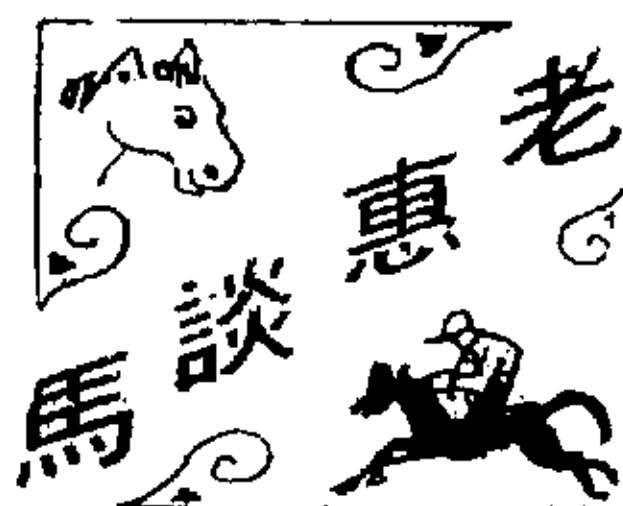 老惠談馬